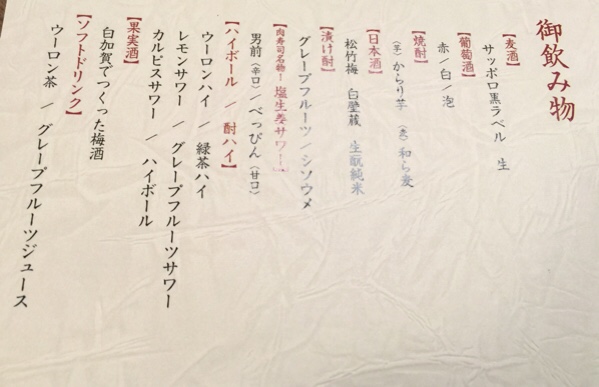 御飲み物
【麦酒】
サッポロ黒ラベル 生
【葡萄酒】
赤/白/泡
【焼酎】
(芋)からり芋 (麦)和ら麦
【日本酒】
松竹梅 白壁蔵 生酛純米
【漬け酎】
グレープフルーツ/シソウメ
【肉寿司名物!塩生姜サワー】
男前(辛口)/べっぴん(甘口)
【ハイボール / 酎ハイ】
ウーロンハイ / 緑茶ハイ
レモンサワー / グレープフルーツサワー
カルピスサワー / ハイボール
【果実酒】
白加賀でつくった梅酒
【ソフトドリンク】
ウーロン茶 / グレープフルーツジュース